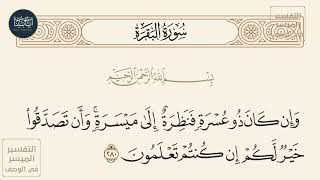 سُورَةُ البَقَرَةِ
التفسير
الميسر
في الوصف
بِسْمِ اللَّهِ الرَّحْمَٰنِ الرَّحِيمِ
وَإِن كَانَ ذُو عُسْرَةٖ فَنَظِرَةٌ إِلَىٰ مَيْسَرَةٖۚ وَأَن تَصَدَّقُواْ
خَيْرٞ لَّكُمۡ إِن كُنتُمۡ تَعۡلَمُونَ ٢٨٠
التفسير
الميسر
في الوصف